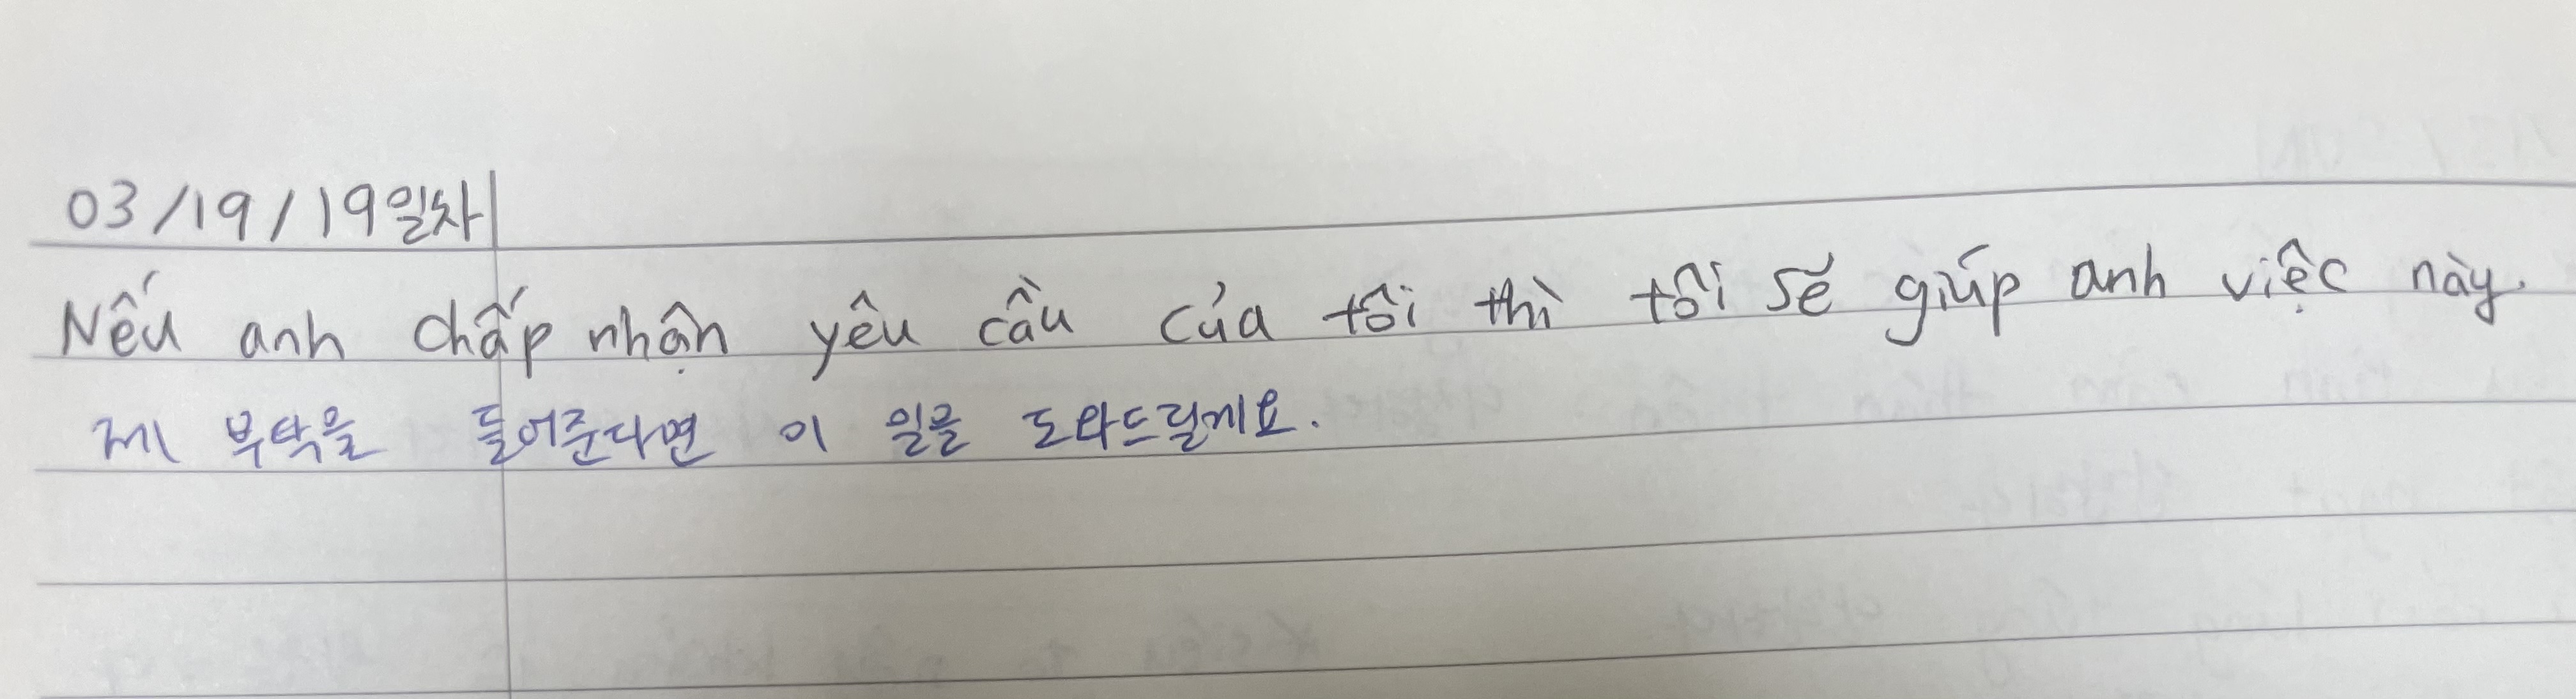 03/19/19일차
Nếu anh chấp nhận yêu cầu của tôi thì tôi sẽ giúp anh việc này.
제 부탁을 들어준다면 이 일을 도와드릴게요.